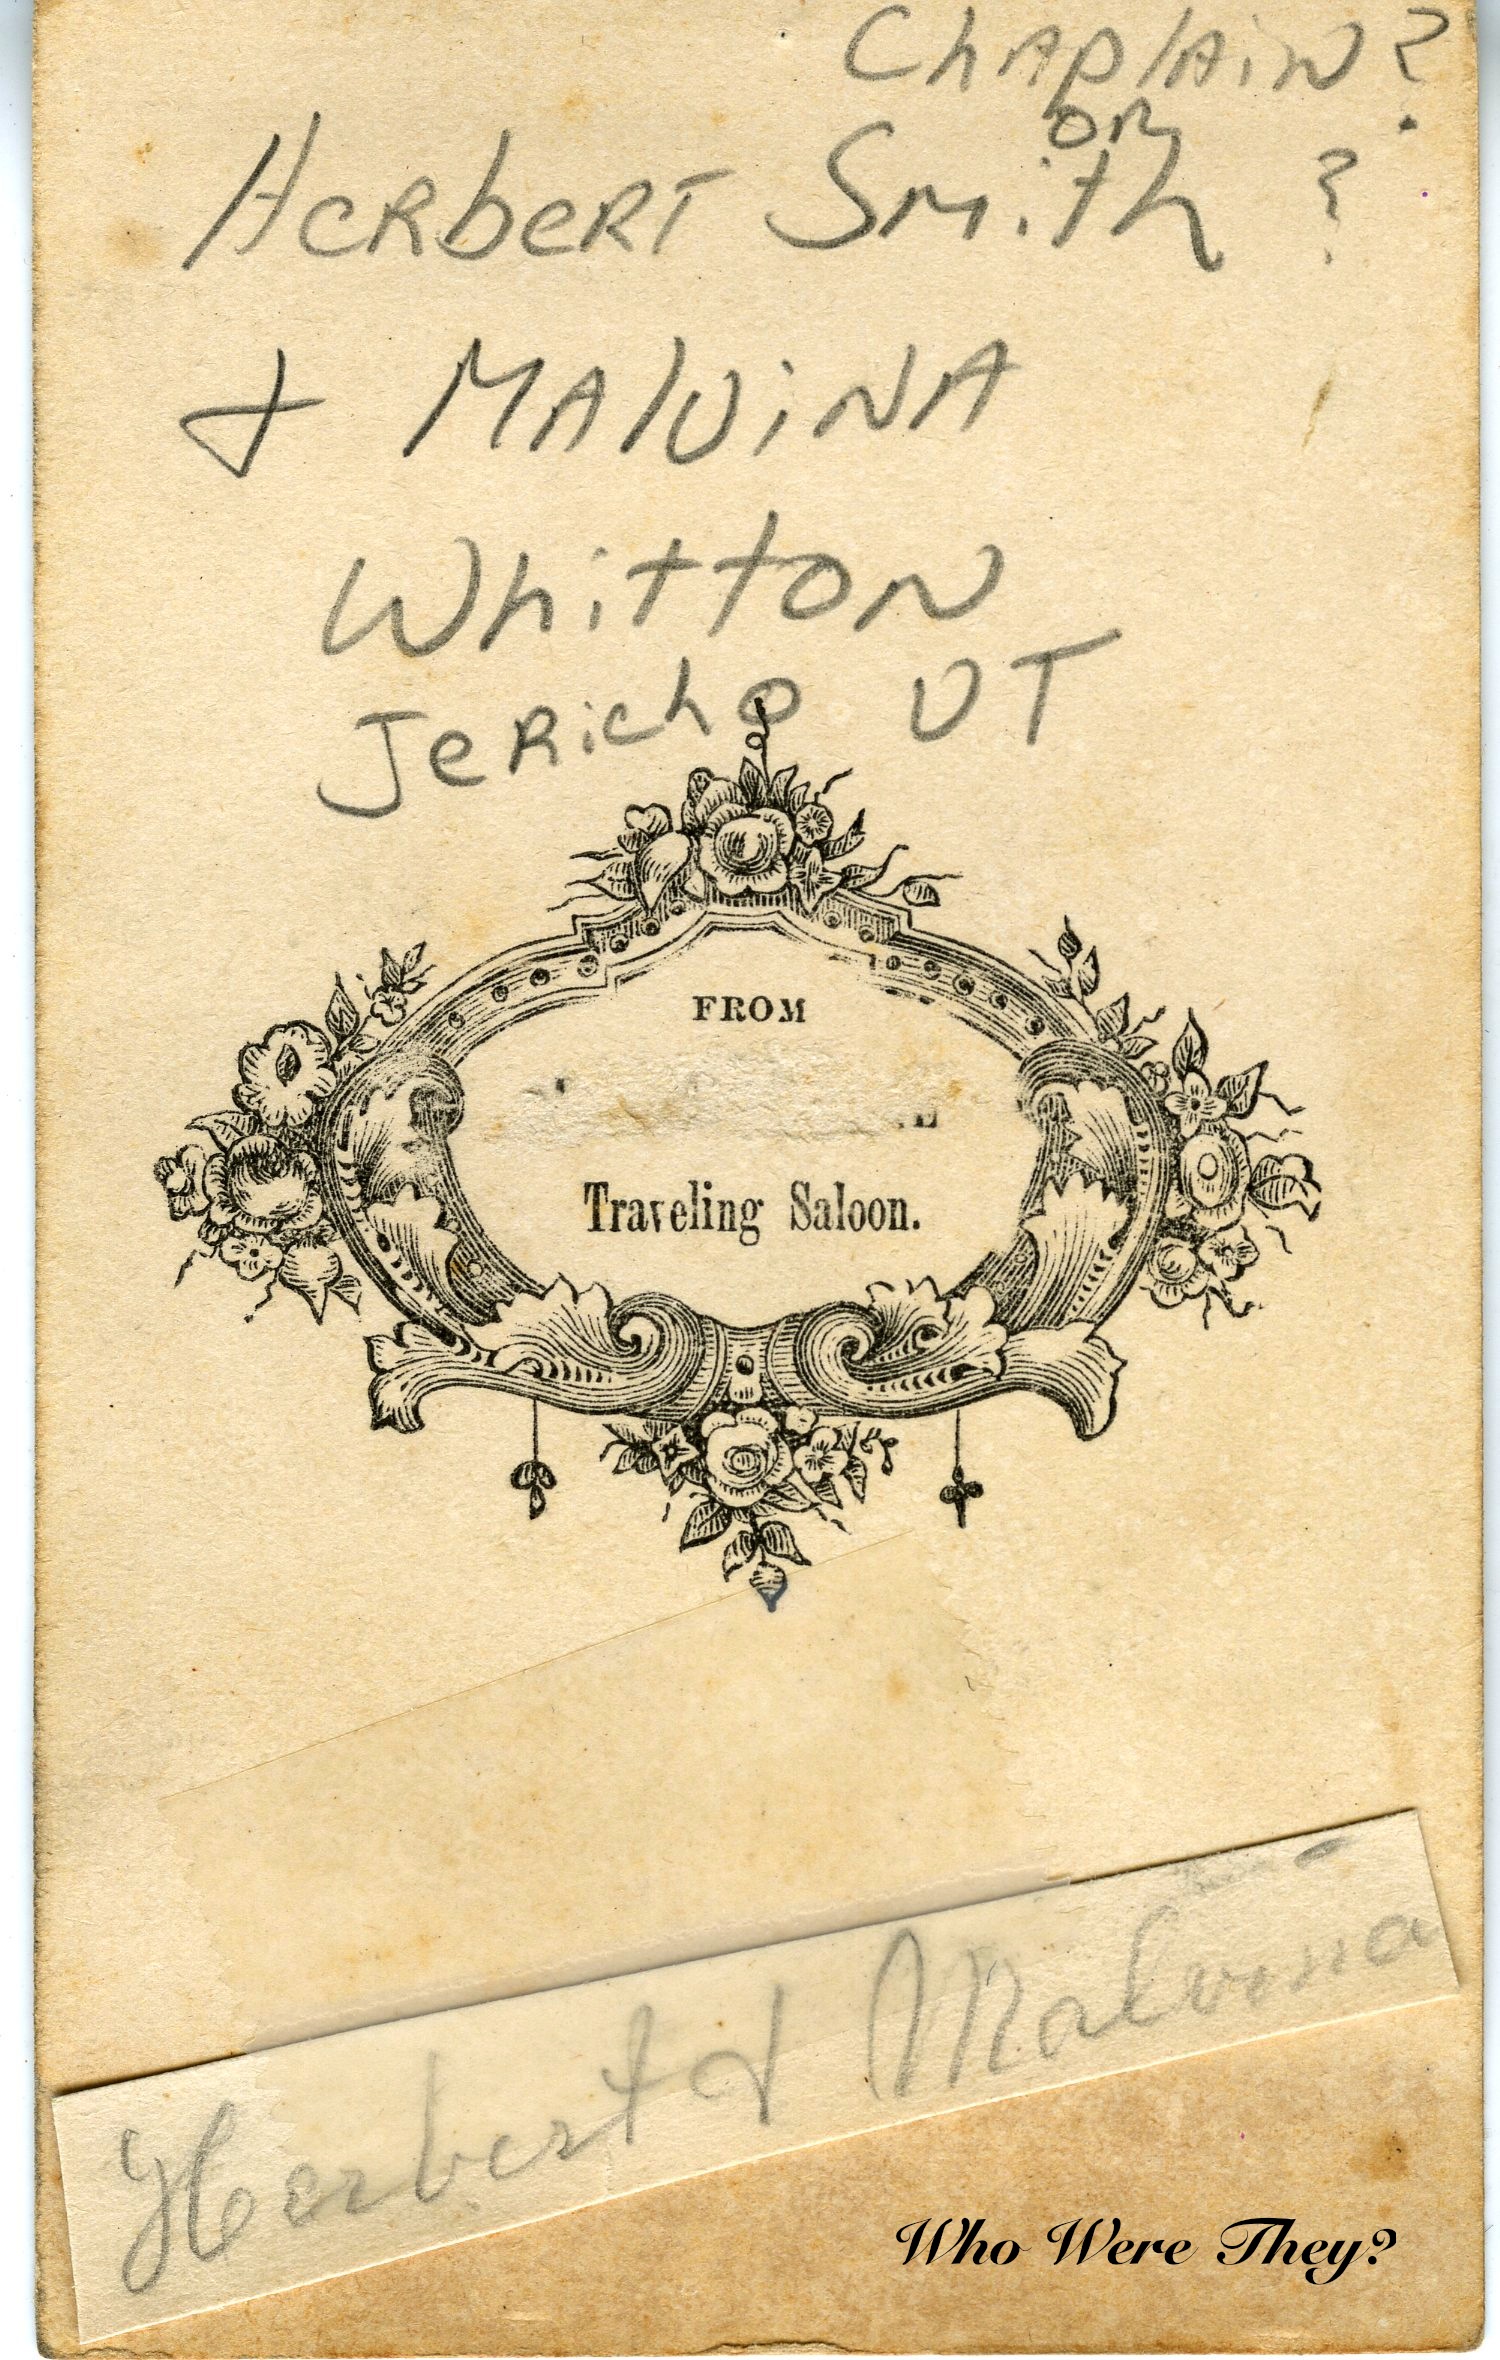 Chaplain?
or
Herbert Smith ?
+ Malvina
Whitton
Jericho VT
FROM
Traveling Saloon.
Herbert & Malvina
Who Were They?